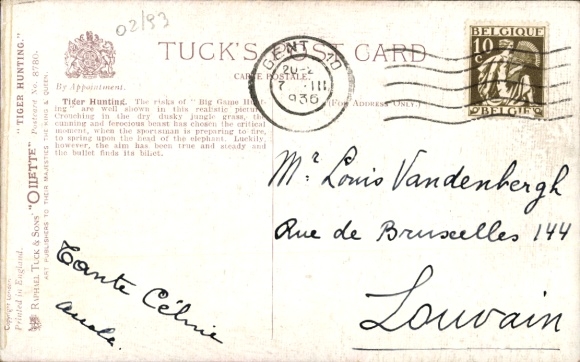 02/93
TUCK'S POST CARD
CARTE POSTALE.
By Appointment.
(FOR ADDRESS ONLY.)
Tiger Hunting. The risks of "Big Game Hunt-
ing" are well shown in this realistic picture.
Crouching in the dry dusky jungle grass, the
cunning and ferocious beast has chosen the critical
moment, when the sportsman is preparing to fire,
to spring upon the head of the elephant. Luckily,
however, the aim has been true and steady and
the bullet finds its billet.
"TIGER HUNTING."
Postcard No. 8780.
RAPHAEL TUCK & SONS' "OILETTE"
ART PUBLISHERS TO THEIR MAJESTIES THE KING & QUEEN.
Printed in England.
GENT 1D
7 III
1936
BELGIQUE
10 c
BELGIË
Mr Louis Vandenbergh
Rue de Bruxelles 144
Louvain
Tante Célnie